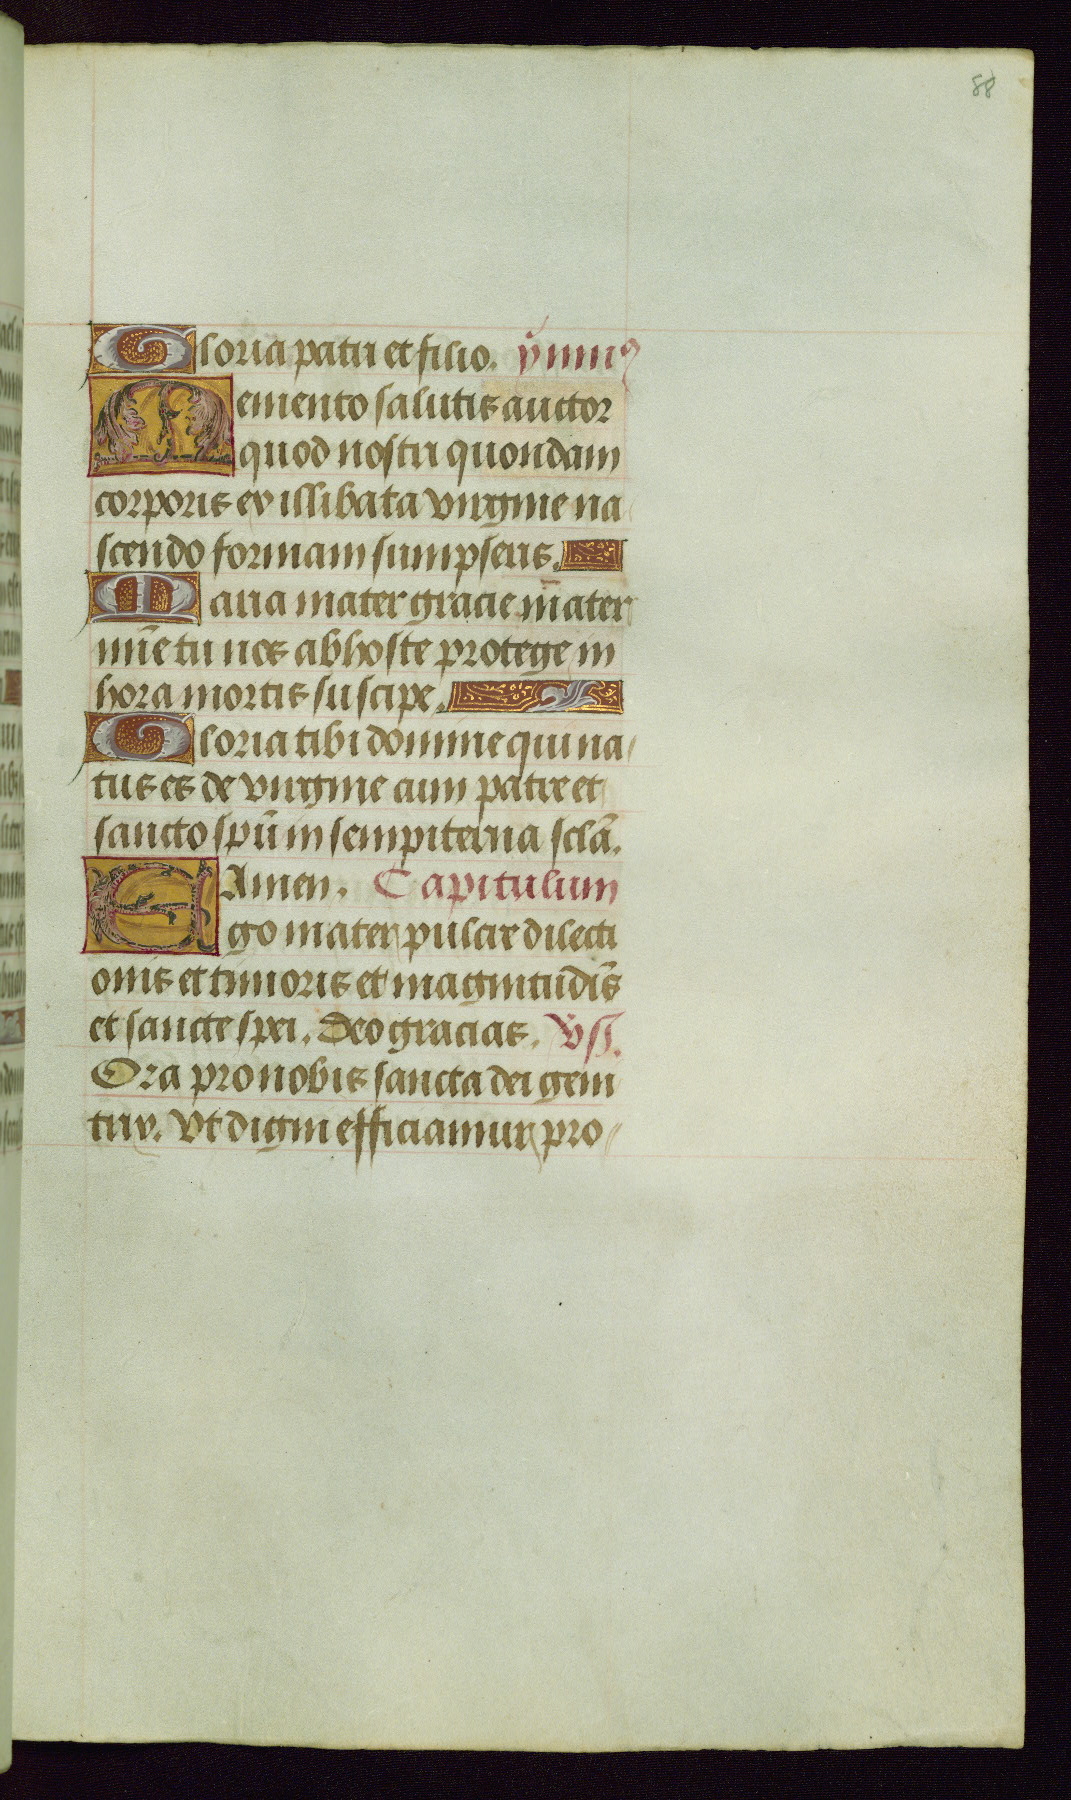 88
Gloria patri et filio. ỹmnꝰ
Memento salutis auctor
quod nostri quondam
corporis ex illibata virgine na
scendo formam sumpseris.
Maria mater gracie m̄ater
mīe tu nos ab hoste protege in
hora mortis suscipe.
Gloria tibi domine qui na
tus es de virgine cum patre et
sancto spū in sempiterna sclā.
Amen. Capitulum
Ego mater pulcre dilecti
onis et timoris et magnitudīs
et sancte spei. Deo gracias. Vs̃.
Ora pro nobis sancta dei geni
trix. Vt digni efficiamur pro